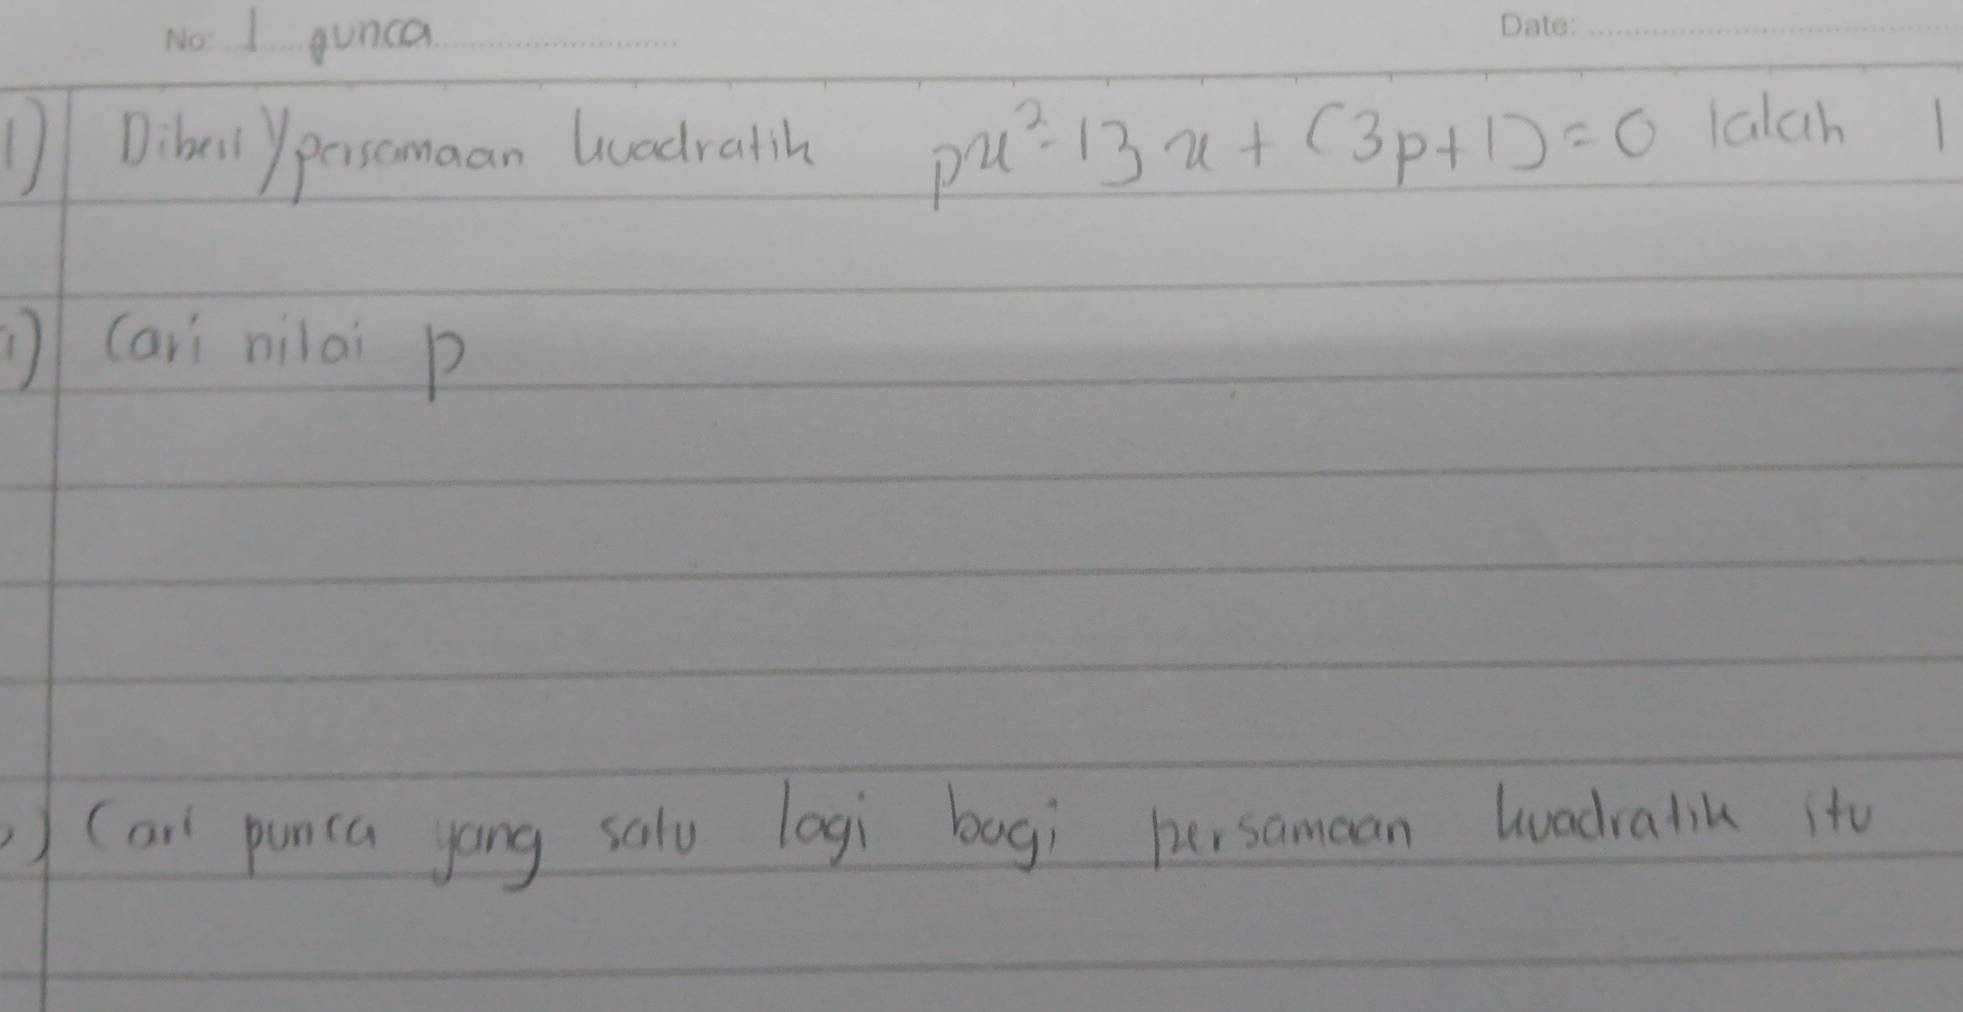 No: 1 punca
Date:
1) Diberi persamaan kuadratik px² - 13x + (3p+1) = 0 ialah 1
i) Cari nilai p
) Cari punca yang satu lagi bagi persamaan kuadratik itu